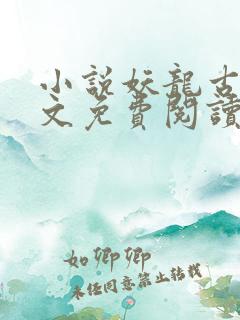 小説妖龍古
文免費閱讀
如卿卿
未经同意禁止转载